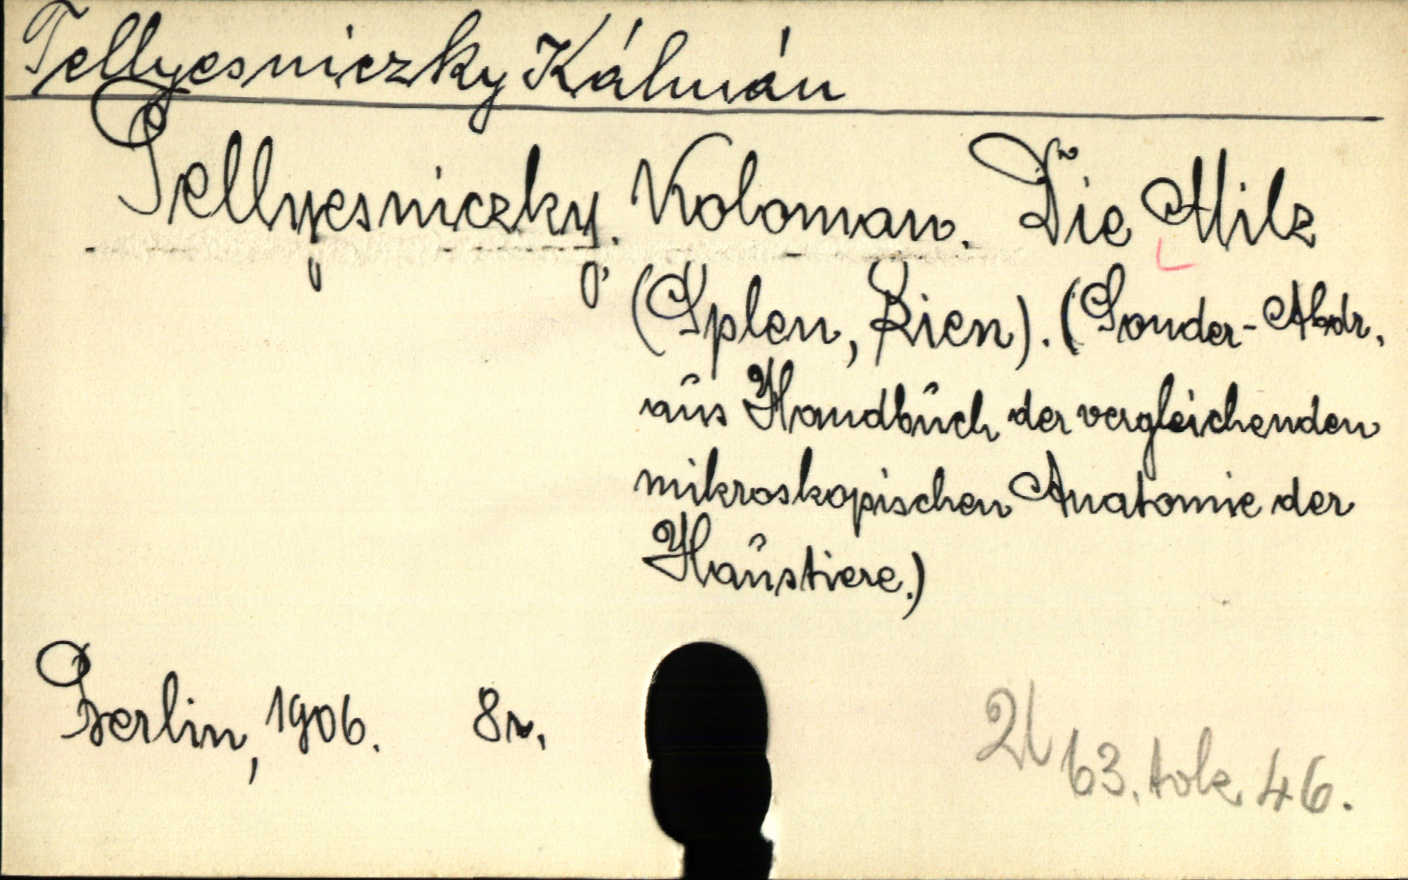 Tellyesniczky Kálmán
Tellyesniczky, Koloman. Die Milz
(Splen, Lien). (Sonder-Abdr.
aus Handbuch der vergleichenden
mikroskopischen Anatomie der
Haustiere.)
Berlin, 1906. 8r.
63. tok 46.